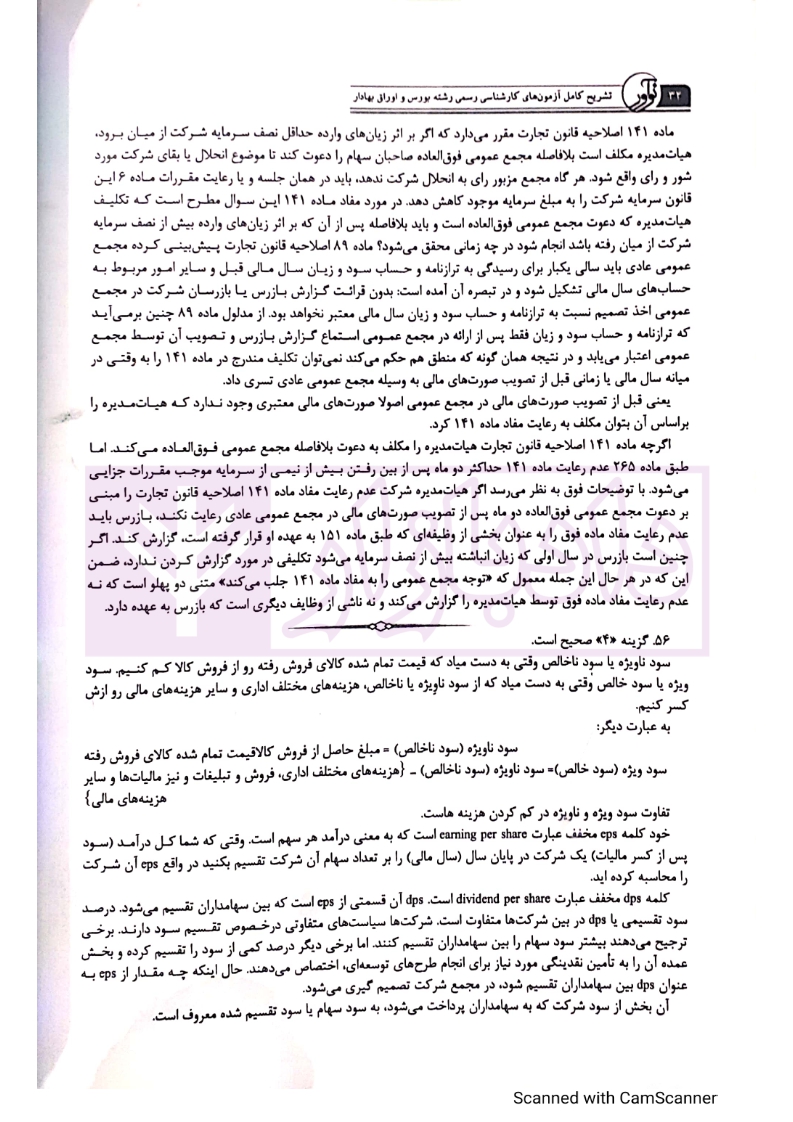 ۳۲ نوآور تشریح کامل آزمون‌های کارشناسی رسمی رشته بورس و اوراق بهادار
ماده ۱۴۱ اصلاحیه قانون تجارت مقرر می‌دارد که اگر بر اثر زیان‌های وارده حداقل نصف سرمایه شرکت از میان برود،
هیات‌مدیره مکلف است بلافاصله مجمع عمومی فوق‌العاده صاحبان سهام را دعوت کند تا موضوع انحلال یا بقای شرکت مورد
شور و رای واقع شود. هر گاه مجمع مزبور رای به انحلال شرکت ندهد، باید در همان جلسه و یا رعایت مقررات ماده ۶ این
قانون سرمایه شرکت را به مبلغ سرمایه موجود کاهش دهد. در مورد مفاد ماده ۱۴۱ این سوال مطرح است که تکلیف
هیات‌مدیره که دعوت مجمع عمومی فوق‌العاده است و باید بلافاصله پس از آن که بر اثر زیان‌های وارده بیش از نصف سرمایه
شرکت از میان رفته باشد انجام شود در چه زمانی محقق می‌شود؟ ماده ۸۹ اصلاحیه قانون تجارت پیش‌بینی کرده مجمع
عمومی عادی باید سالی یکبار برای رسیدگی به ترازنامه و حساب سود و زیان سال مالی قبل و سایر امور مربوط به
حساب‌های سال مالی تشکیل شود و در تبصره آن آمده است: بدون قرائت گزارش بازرس یا بازرسان شرکت در مجمع
عمومی اخذ تصمیم نسبت به ترازنامه و حساب سود و زیان سال مالی معتبر نخواهد بود. از مدلول ماده ۸۹ چنین برمی‌آید
که ترازنامه و حساب سود و زیان فقط پس از ارائه در مجمع عمومی استماع گزارش بازرس و تصویب آن توسط مجمع
عمومی اعتبار می‌یابد و در نتیجه همان گونه که منطق هم حکم می‌کند نمی‌توان تکلیف مندرج در ماده ۱۴۱ را به وقتی در
میانه سال مالی یا زمانی قبل از تصویب صورت‌های مالی به وسیله مجمع عمومی عادی تسری داد.
یعنی قبل از تصویب صورت‌های مالی در مجمع عمومی اصولا صورت‌های مالی معتبری وجود ندارد که هیات‌مدیره را
براساس آن بتوان مکلف به رعایت مفاد ماده ۱۴۱ کرد.
اگرچه ماده ۱۴۱ اصلاحیه قانون تجارت هیات‌مدیره را مکلف به دعوت بلافاصله مجمع عمومی فوق‌العاده می‌کند. اما
طبق ماده ۲۶۵ عدم رعایت ماده ۱۴۱ حداکثر دو ماه پس از بین رفتن بیش از نیمی از سرمایه موجب مقررات جزایی
می‌شود. با توضیحات فوق به نظر می‌رسد اگر هیات‌مدیره شرکت عدم رعایت مفاد ماده ۱۴۱ اصلاحیه قانون تجارت را مبنی
بر دعوت مجمع عمومی فوق‌العاده دو ماه پس از تصویب صورت‌های مالی در مجمع عمومی عادی رعایت نکند، بازرس باید
عدم رعایت مفاد ماده فوق را به عنوان بخشی از وظیفه‌ای که طبق ماده ۱۵۱ به عهده او قرار گرفته است، گزارش کند. اگر
چنین است بازرس در سال اولی که زیان انباشته بیش از نصف سرمایه می‌شود تکلیفی در مورد گزارش کردن ندارد، ضمن
این که در هر حال این جمله معمول که «توجه مجمع عمومی را به مفاد ماده ۱۴۱ جلب می‌کند» متنی دو پهلو است که نه
عدم رعایت مفاد ماده فوق توسط هیات‌مدیره را گزارش می‌کند و نه ناشی از وظایف دیگری است که بازرس به عهده دارد.
۵۶. گزینه «۴» صحیح است.
سود ناویژه یا سود ناخالص وقتی به دست میاد که قیمت تمام شده کالای فروش رفته رو از فروش کالا کم کنیم. سود
ویژه یا سود خالص وقتی به دست میاد که از سود ناویژه یا ناخالص، هزینه‌های مختلف اداری و سایر هزینه‌های مالی رو ازش
کسر کنیم.
به عبارت دیگر:
سود ناویژه (سود ناخالص) = مبلغ حاصل از فروش کالاقیمت تمام شده کالای فروش رفته
سود ویژه (سود خالص)= سود ناویژه (سود ناخالص) ـ {هزینه‌های مختلف اداری، فروش و تبلیغات و نیز مالیات‌ها و سایر
هزینه‌های مالی}
تفاوت سود ویژه و ناویژه در کم کردن هزینه هاست.
خود کلمه eps مخفف عبارت earning per share است که به معنی درآمد هر سهم است. وقتی که شما کل درآمد (سود
پس از کسر مالیات) یک شرکت در پایان سال (سال مالی) را بر تعداد سهام آن شرکت تقسیم بکنید در واقع eps آن شرکت
را محاسبه کرده اید.
کلمه dps مخفف عبارت dividend per share است. dps آن قسمتی از eps است که بین سهامداران تقسیم می‌شود. درصد
سود تقسیمی یا dps در بین شرکت‌ها متفاوت است. شرکت‌ها سیاست‌های متفاوتی درخصوص تقسیم سود دارند. برخی
ترجیح می‌دهند بیشتر سود سهام را بین سهامداران تقسیم کنند. اما برخی دیگر درصد کمی از سود را تقسیم کرده و بخش
عمده آن را به تأمین نقدینگی مورد نیاز برای انجام طرح‌های توسعه‌ای، اختصاص می‌دهند. حال اینکه چه مقدار از eps به
عنوان dps بین سهامداران تقسیم شود، در مجمع شرکت تصمیم گیری می‌شود.
آن بخش از سود شرکت که به سهامداران پرداخت می‌شود، به سود سهام یا سود تقسیم شده معروف است.
Scanned with CamScanner